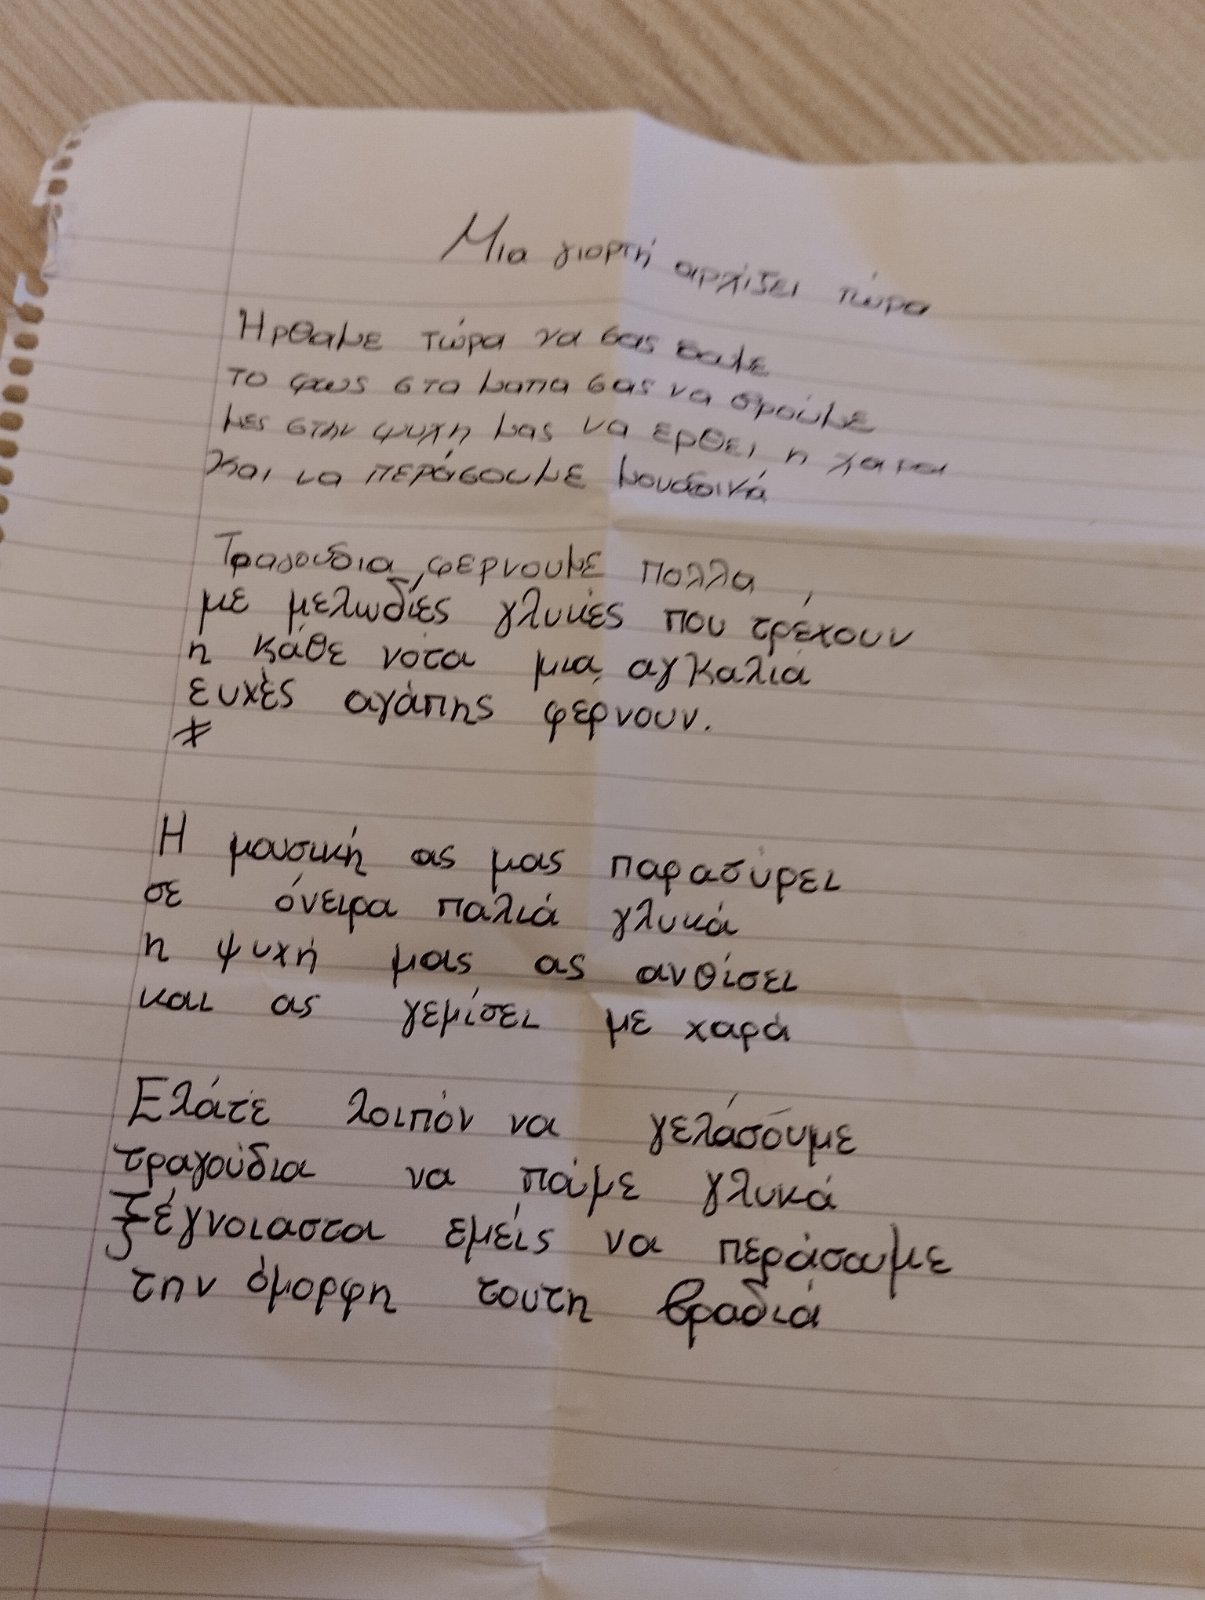 Μια γιορτή αρχίζει τώρα
Ηρθαμε τώρα να σας δαμε
το φως στα ματια σας να σρούμε
μες στην ψυχη μας να ερθει η χαρα
και να περάσουμε μουσσινά
Τραγουδια, φερνουμε πολλα,
με μελωδίες γλυκές που τρέχουν
η κάθε νότα μια αγκαλιά
ευχές αγάπης φέρνουν.
*
Η μουσική ας μας παρασύρει
σε όνειρα παλιά γλυκά
η ψυχή μας ας ανθίσει
και ας γεμίσει με χαρά
Ελάτε λοιπόν να γελάσουμε
τραγούδια να πάμε γλυκά
ξέγνοιαστα εμείς να περάσουμε
την όμορφη τουτη βραδιά